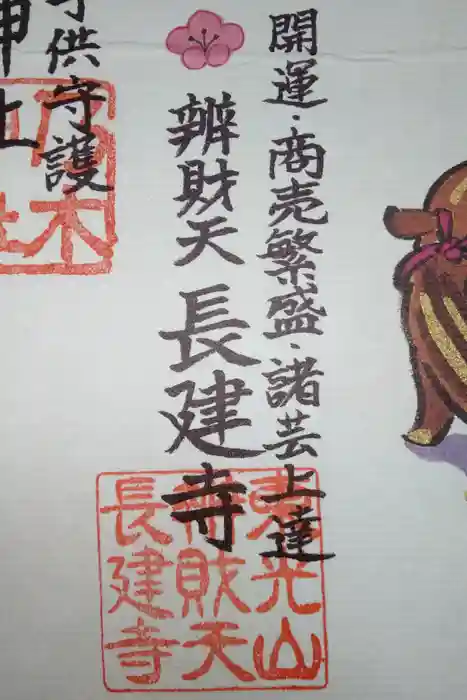 開運・商売繁盛・諸芸上達
辨財天 長建寺
東光山
辨財天
長建寺
子供守護